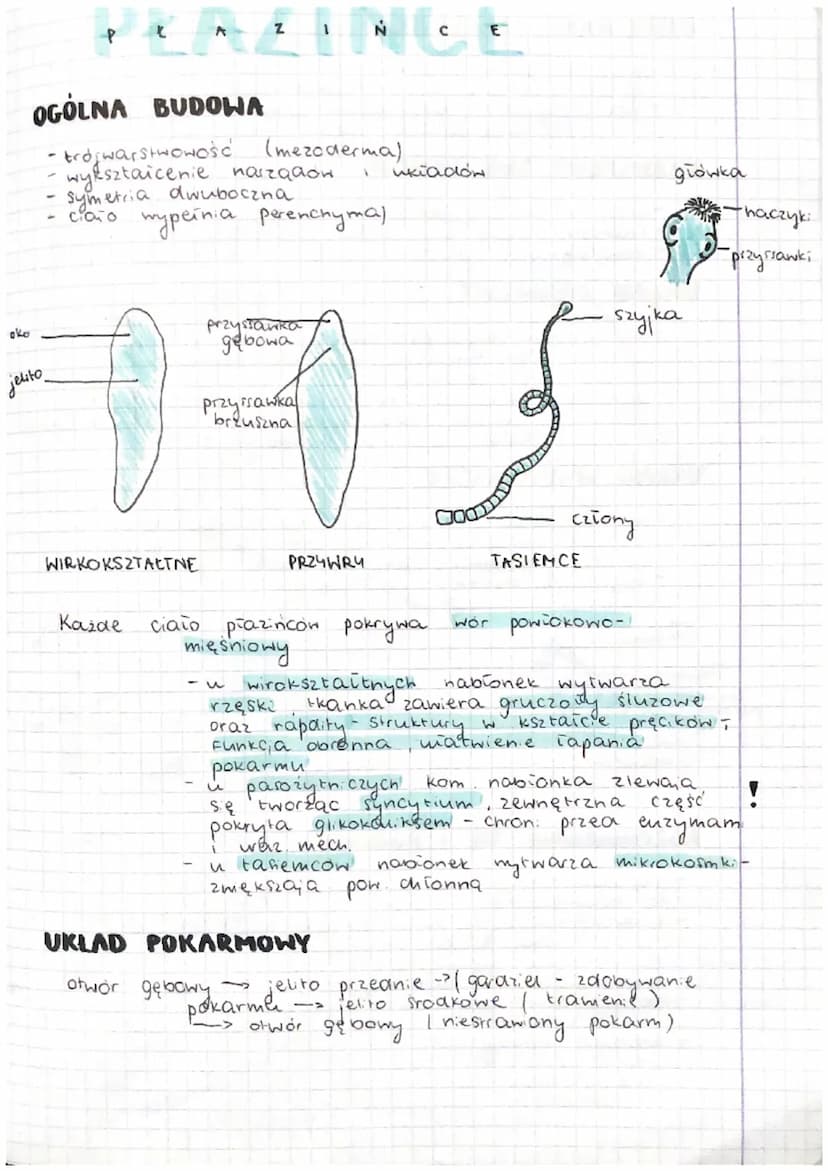 PŁAZIŃCE
OGÓLNA BUDOWA
- trójwarstwowość (mezoderma)
- wykształcenie narządów i układów
- symetria dwuboczna
- ciało wypełnia perenchyma)
główka
haczyki
przyssawki
oko
jelito
przyssawka
gębowa
przyssawka
brzuszna
szyjka
człony
WIRKOKSZTAŁTNE
PRZYWRY
TASIEMCE
Każde ciało płazińców pokrywa wór powłokowo-
mięśniowy
- u wirokształtnych nabłonek wytwarza
rzęski, tkanka zawiera gruczoły śluzowe
oraz rapdity - struktury w kształcie pręcików,
funkcja obronna, ułatwienie łapania
pokarmu
- u pasożytniczych kom. nabłonka zlewają
się tworząc syncytium, zewnętrzna część !
pokryta glikokaliksem - chroni przed enzymami
i uraz. mech.
- u tasiemców nabłonek wytwarza mikrokosmki -
zwiększają pow. chłonną
UKŁAD POKARMOWY
otwór gębowy -> jelito przednie -> (gardziel - zdobywanie
pokarmu -> jelito środkowe (trawienie)
-> otwór gębowy (niestrawiony pokarm)